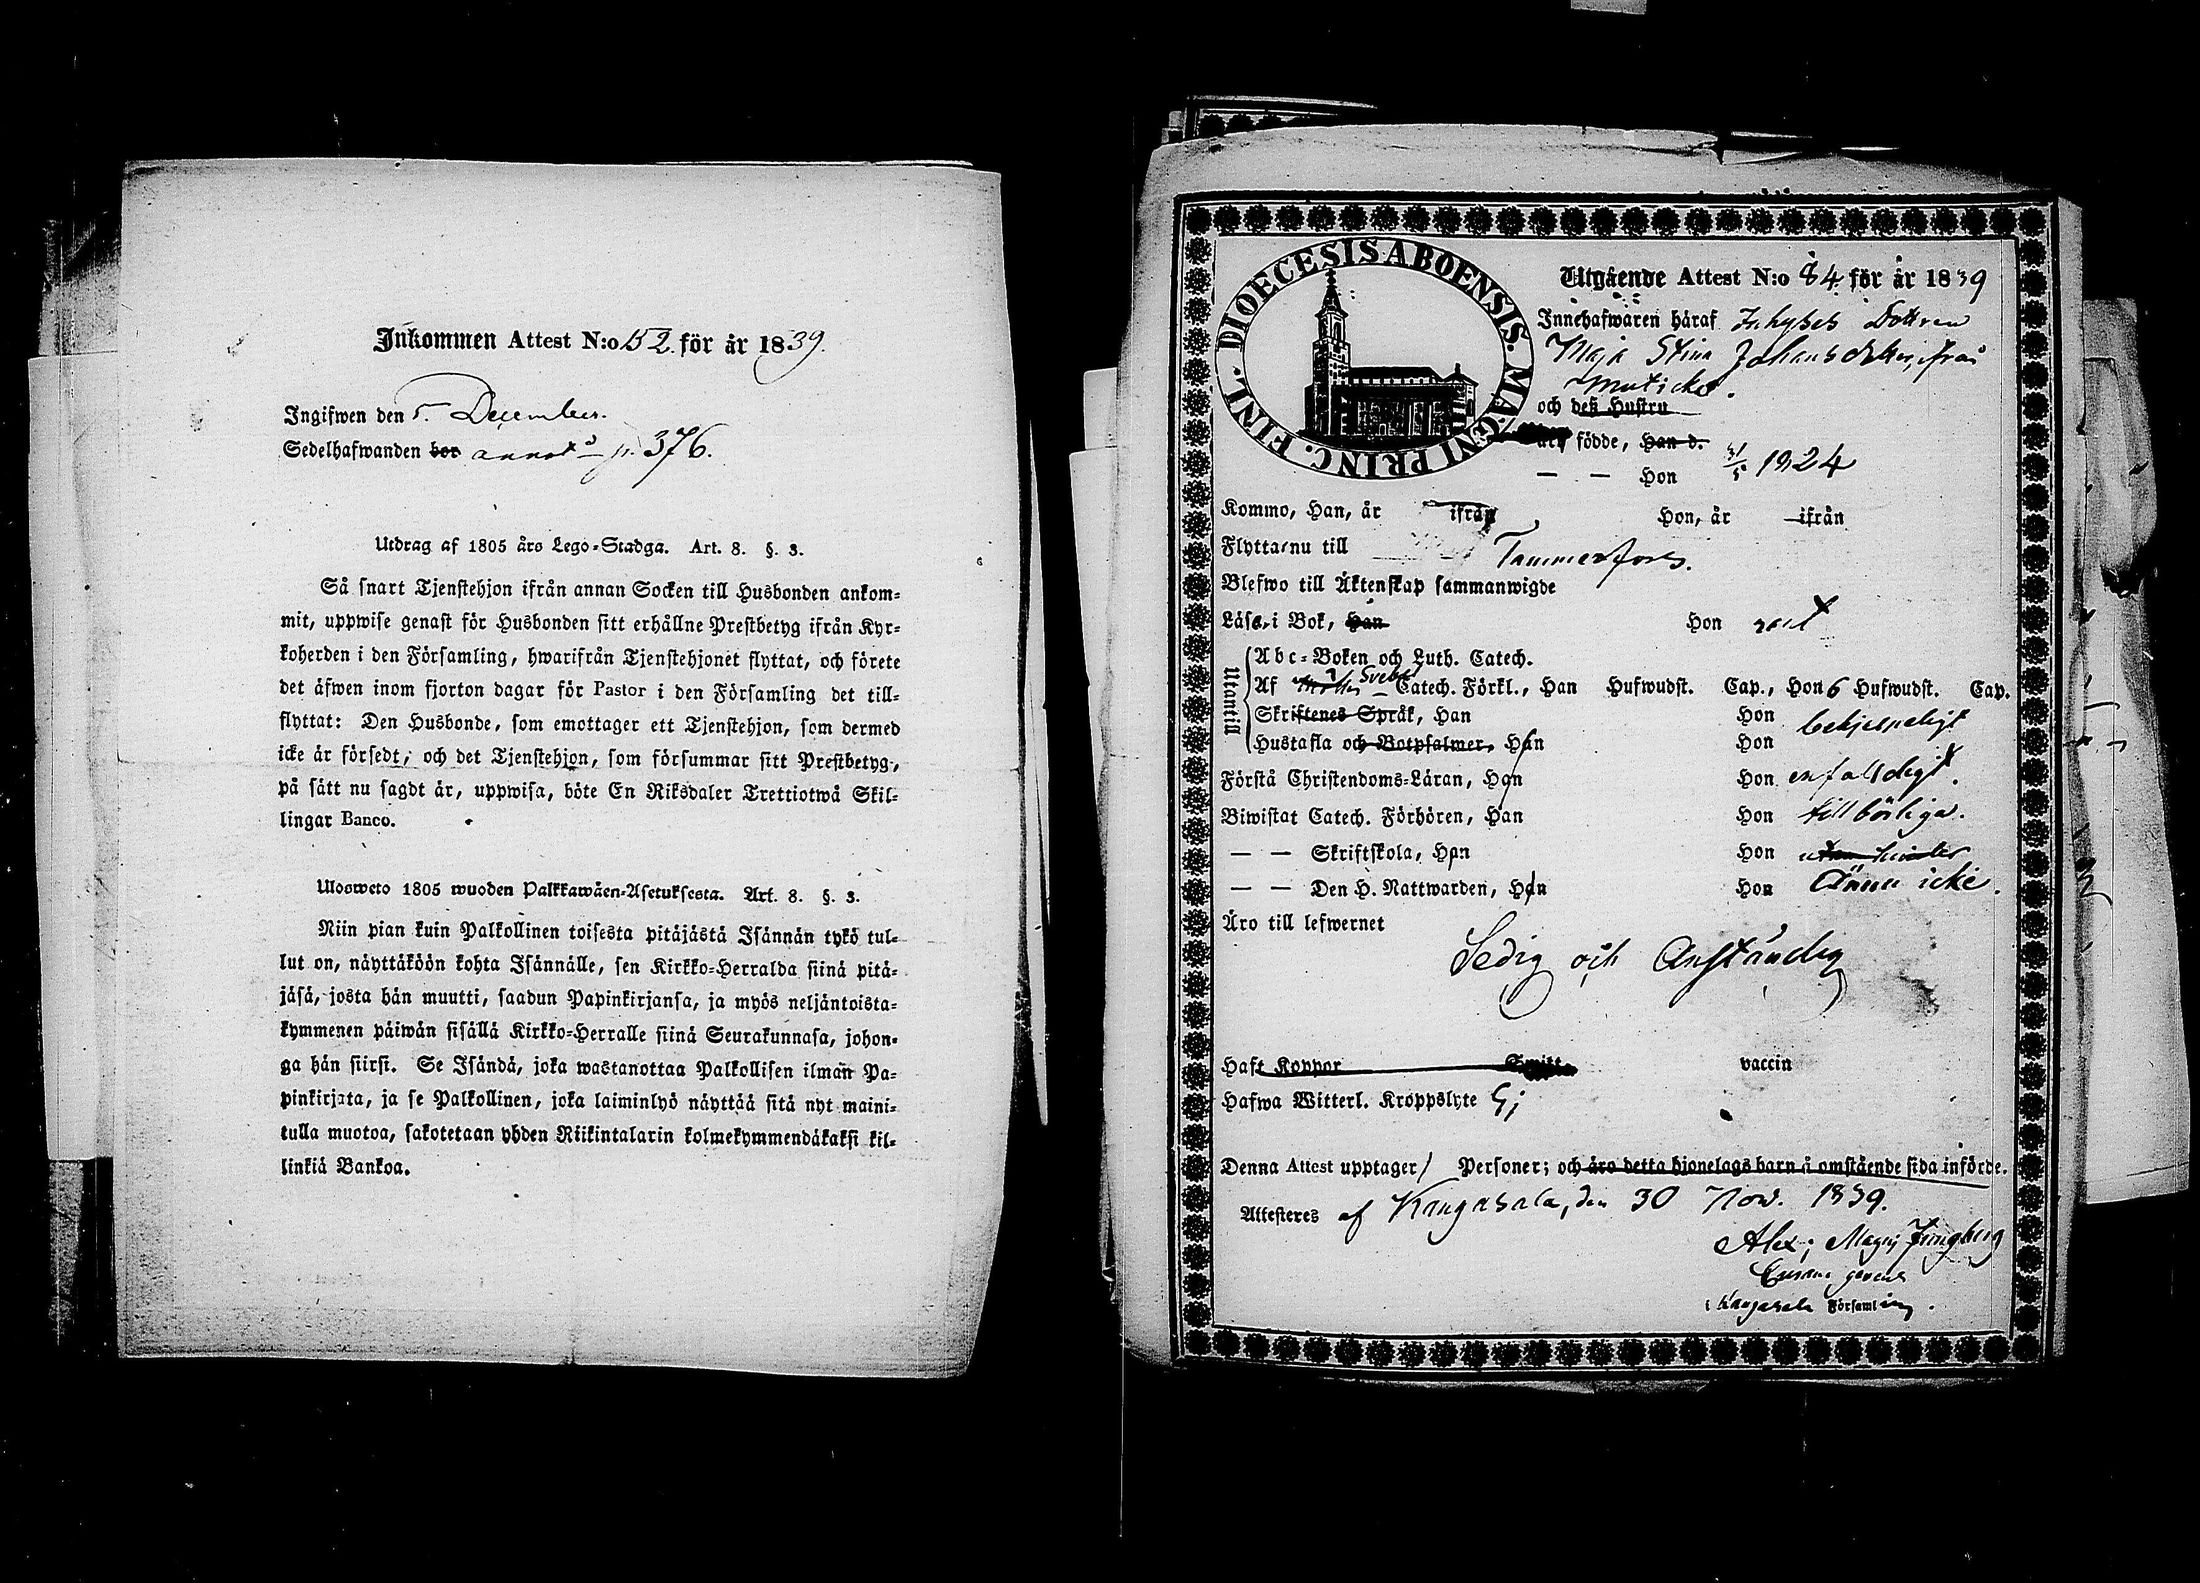 Inkommen Attest N:o 152. för år 1839.
Ingifwen den 5. December.
Sedelhafwanden bor annot. p. 376.
Utdrag af 1805 års Lego-Stadga. Art. 8. §. 3.
Så snart Tjenstehjon ifrån annan Socken till Husbonden ankom-
mit, uppwise genast för Husbonden sitt erhållne Prestbetyg ifrån Kyr-
koherden i den Församling, hwarifrån Tjenstehjonet flyttat, och förete
det äfwen inom fjorton dagar för Pastor i den Församling det till-
flyttat: Den Husbonde, som emottager ett Tjenstehjon, som dermed
icke är försedt, och det Tjenstehjon, som försummar sitt Prestbetyg,
på sätt nu sagdt är, uppwisa, böte En Riksdaler Trettiotwå Skil-
lingar Banco.
Ulosweto 1805 wuoden Palkkawäen-Asetuksesta. Art. 8. §. 3.
Niin pian kuin Palkollinen toisesta pitäjästä Isännän tykö tul-
lut on, näyttäköön kohta Isännälle, sen Kirkko-Herralda siinä pitä-
jäsä, josta hän muutti, saadun Papinkirjansa, ja myös neljäntoista-
kymmenen päiwän sisällä Kirkko-Herralle siinä Seurakunnasa, johon-
ga hän siirsi. Se Isändä, joka wastanottaa Palkollisen ilman Pa-
pinkirjata, ja se Palkollinen, joka laiminlyö näyttää sitä nyt maini-
tulla muotoa, sakotetaan yhden Riikintalarin kolmekymmendäkaksi kil-
linkiä Bankoa.
DIOECESIS ABOENSIS. MAGNI PRINC. FINL.
Utgående Attest N:o 84. för år 1839
Innehafwaren häraf Inhyses Dottren
Maja Stina Johansdotter, från
och deß Hustru
äro födde, Han d.
— — Hon 31/5 1824
Kommo, Han, år ifrån Hon, år ifrån
Flytta nu till Tammerfors.
Blefwo till Äktenskap sammanwigde
Läsa i Bok, Han Hon rent
Utantill
Abc-Boken och Luth. Catech.
Af Svebil. Catech. Förkl., Han Hufwudst. Cap., Hon 6 Hufwudst. Cap.
Skriftenes Språk, Han Hon
Hustafla och Botpsalmer, Han Hon
Förstå Christendoms-Läran, Han Hon enfalldigt.
Biwistat Catech. Förhören, Han Hon tillbörliga.
— — Skriftskola, Han Hon
— — Den H. Nattwarden, Han Hon Ännu icke.
Äro till lefwernet
Sedig och Anständig
Haft Koppor Smitta vaccin
Hafwa Witterl. Kroppslyte Ej
Denna Attest upptager 1 Personer; och äro detta hjonelags barn å omstående sida införde.
Attesteres af Kangasala, den 30 Nov. 1839.
Alex. Magn. Jungberg
i Kangasala Församling.